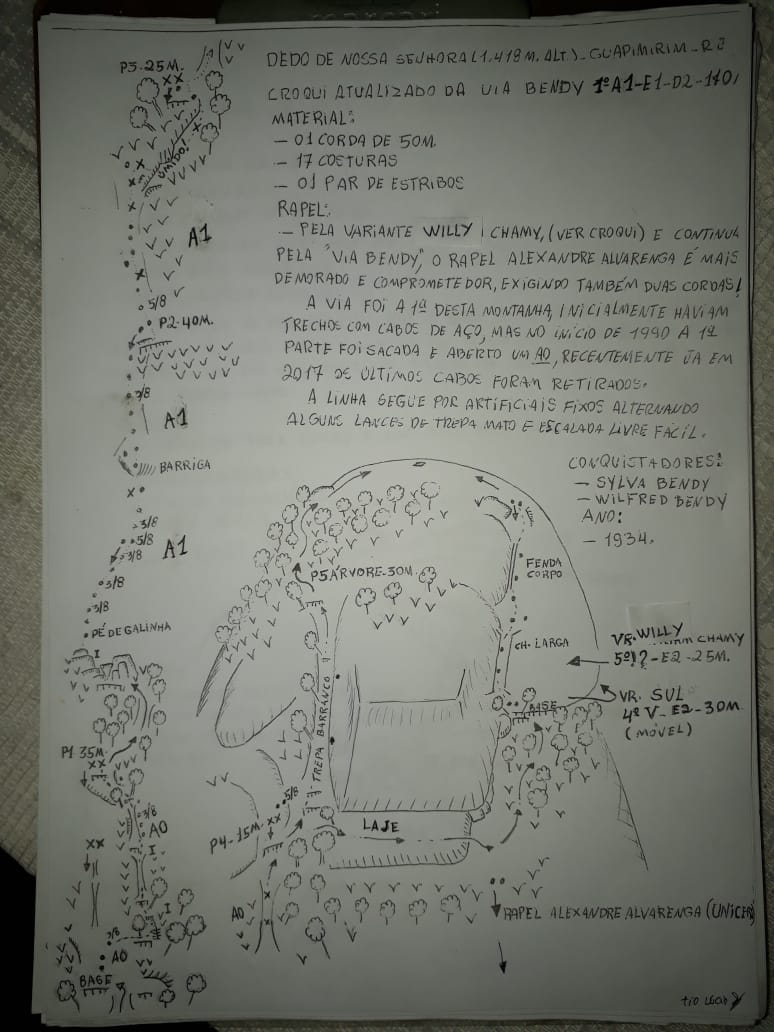 DEDO DE NOSSA SENHORA (1.418 M. ALT.) - GUAPIMIRIM - RJ
CROQUI ATUALIZADO DA VIA BENDY 1º A1-E1-D2-170
MATERIAL:
- 01 CORDA DE 50M.
- 17 COSTURAS
- 01 PAR DE ESTRIBOS
RAPEL:
- PELA VARIANTE WILLY CHAMY, (VER CROQUI) E CONTINUA
PELA "VIA BENDY", O RAPEL ALEXANDRE ALVARENGA É MAIS
DEMORADO E COMPROMETEDOR, EXIGINDO TAMBÉM DUAS CORDAS!
A VIA FOI A 1ª DESTA MONTANHA, INICIALMENTE HAVIAM
TRECHOS COM CABOS DE AÇO, MAS NO INÍCIO DE 1990 A 1ª
PARTE FOI SACADA E ABERTO UM A0, RECENTEMENTE JÁ EM
2017 OS ÚLTIMOS CABOS FORAM RETIRADOS.
A LINHA SEGUE POR ARTIFICIAIS FIXOS ALTERNANDO
ALGUNS LANCES DE TREPA MATO E ESCALADA LIVRE FÁCIL.
CONQUISTADORES:
- SYLVA BENDY
- WILFRED BENDY
ANO:
- 1934.
P3-25M.
UMIDO!
A1
5/8
P2-40M.
3/8
A1
BARRIGA
3/8
5/8
3/8
A1
3/8
3/8
PÉ DE GALINHA
P1 35M.
3/8
A0
3/8
A0
BASE
P5 ÁRVORE-30M.
FENDA
CORPO
CH. LARGA
VR. WILLY
CHAMY
5º!?-E2-25M.
VR. SUL
4º V-E2-30M
(MÓVEL)
BASE
TREPA BARRANCO
5/8
P4-15M.
LAJE
A0
RAPEL ALEXANDRE ALVARENGA (UNICERJ)